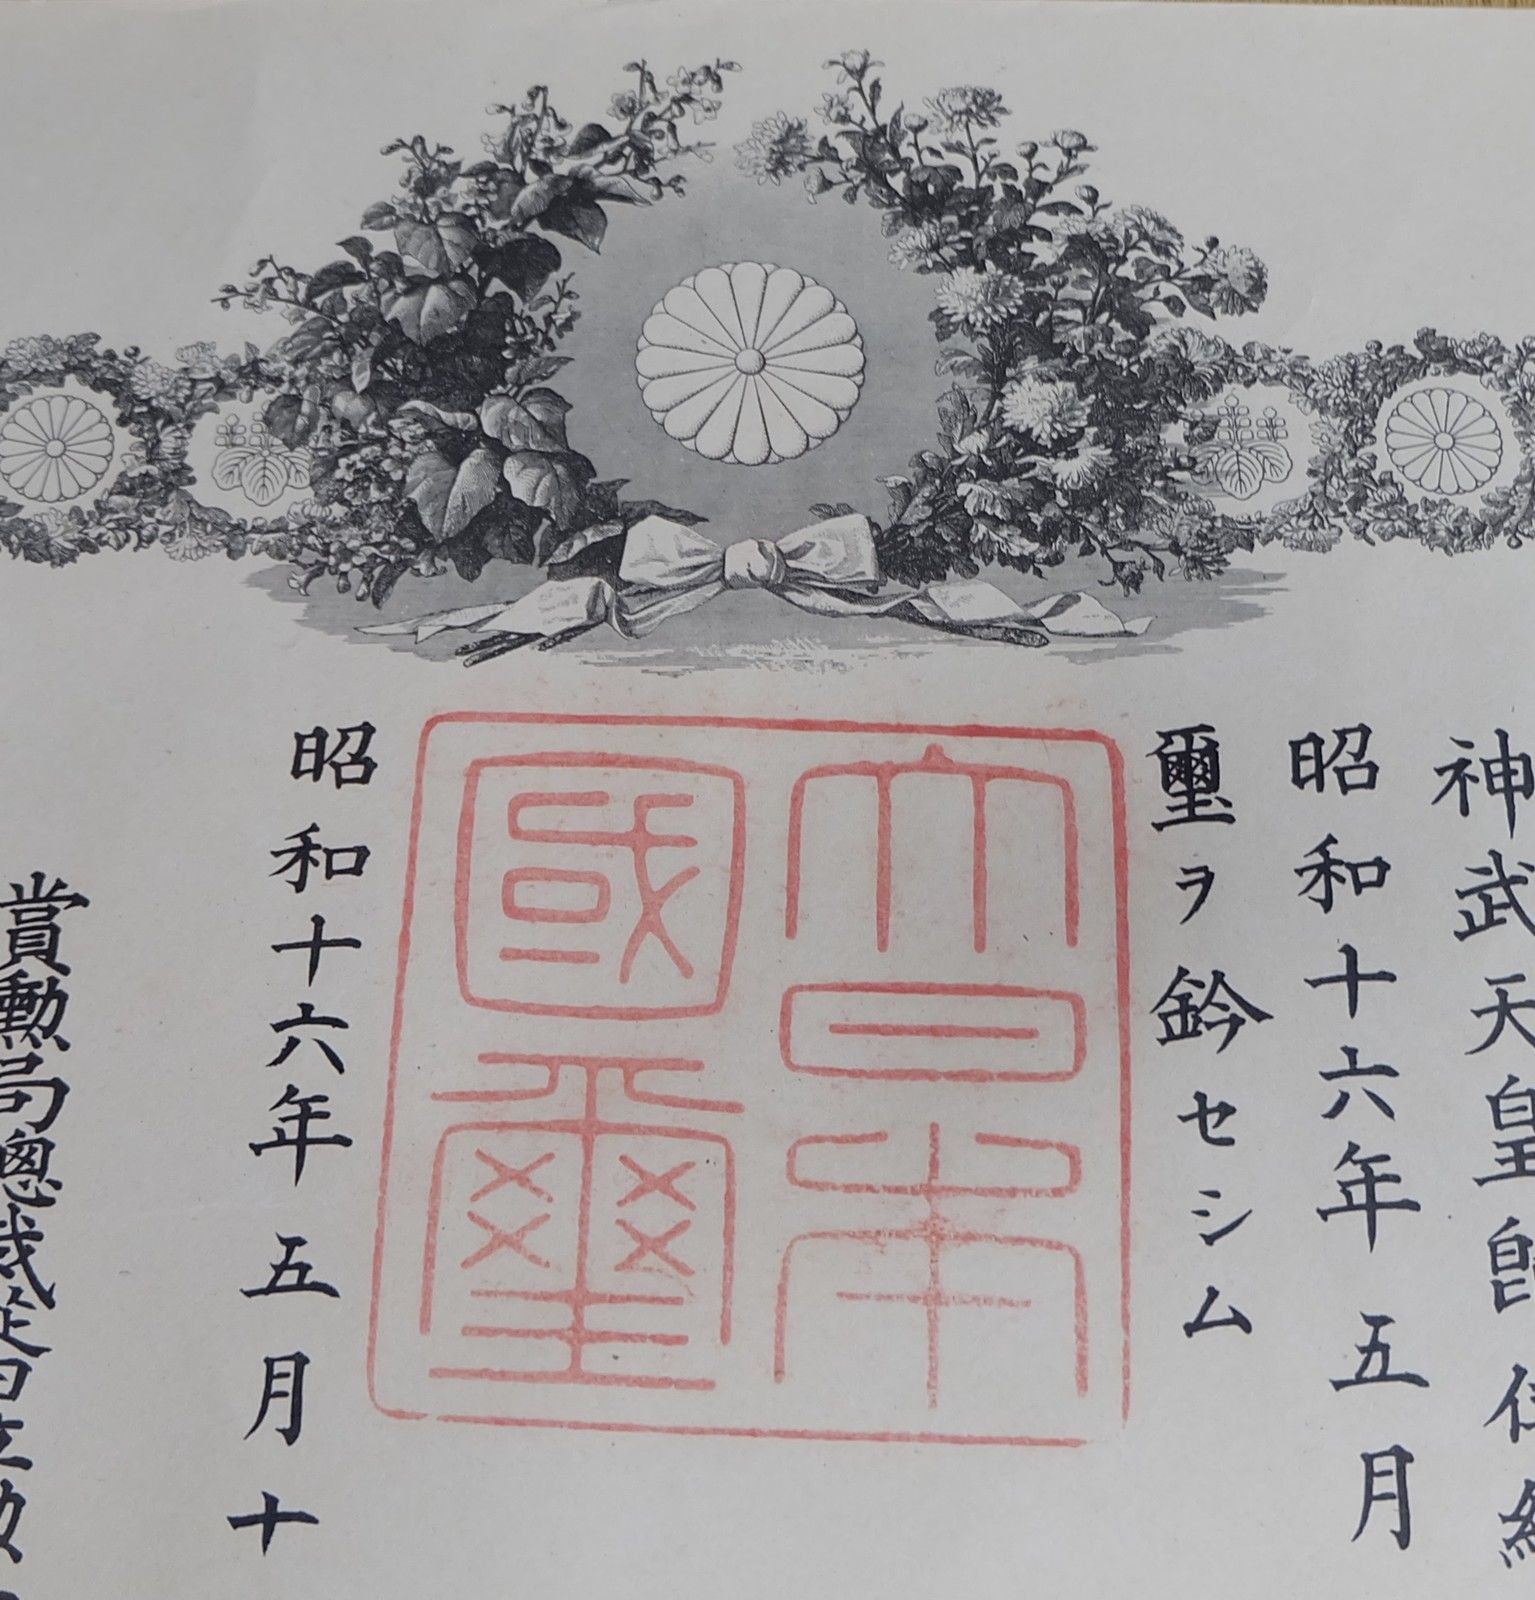 神武天皇卽位紀
昭和十六年五月
璽ヲ鈐セシム
大日本
國璽
昭和十六年五月十
賞勳局總裁從四位勳